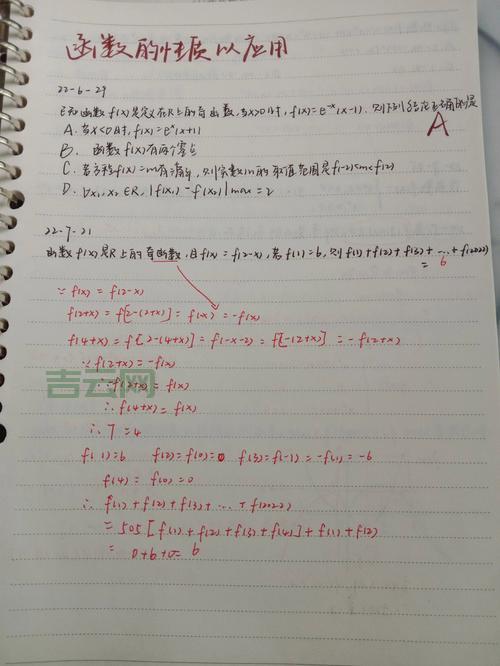 函数的性质以应用
22-6-29
已知函数f(x)是定义在R上的奇函数,当x>0时,f(x)=e⁻ˣ(x-1).则下列结论正确的是
A
A. 当x<0时,f(x)=eˣ(x+1)
B. 函数f(x)有两个零点
C. 若方程f(x)=m有解,则实数m的取值范围是f(-2)≤m≤f(2)
D. ∀x₁,x₂∈R,|f(x₁)-f(x₂)|max=2
22-7-21
函数f(x)是R上的奇函数,且f(x)=f(2-x),若f(1)=6,则f(1)+f(2)+f(3)+…+f(2022)
=6
∵f(x)=f(2-x)
f(2+x)=f[2-(2+x)]=f(-x)=-f(x)
f(4+x)=f[2-(4+x)]=f(-x-2)=f[-(2+x)]=-f(2+x)
∵f(2+x)=-f(x)
∴-f(2+x)=f(x)
∴f(4+x)=f(x)
∴T=4
f(1)=6 f(2)=f(0)=0 f(3)=f(-1)=-f(1)=-6
f(4)=f(0)=0
∴f(1)+f(2)+f(3)+…+f(2022)
=505[f(1)+f(2)+f(3)+f(4)]+f(1)+f(2)
=0+6+0=6
吉云网